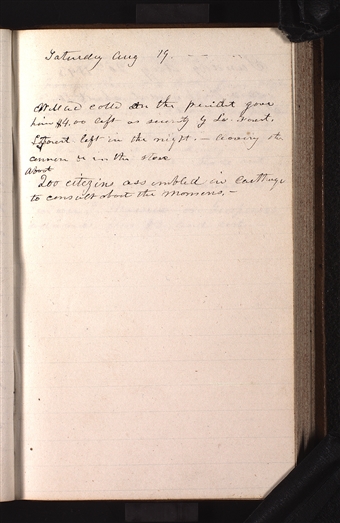 Saturday Aug 19. — —
Willard called on the president gave
him $4.00 left as security by Dr. Foster.
left in the night. — leaving the
cannon &c in the store
about
200 citizens assembled in Carthage
to consult about the Mormons. —